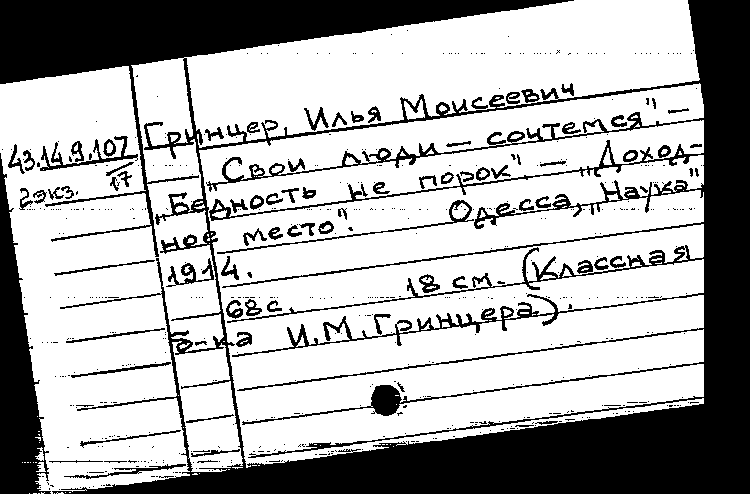 Гринцер, Илья Моисеевич
43.14.9.107
17
2 экз.
„Свои люди — сочтемся". —
„Бедность не порок". — „Доход-
ное место". Одесса, „Наука",
1914.
68 с. 18 см. (Классная
б-ка И.М. Гринцера).